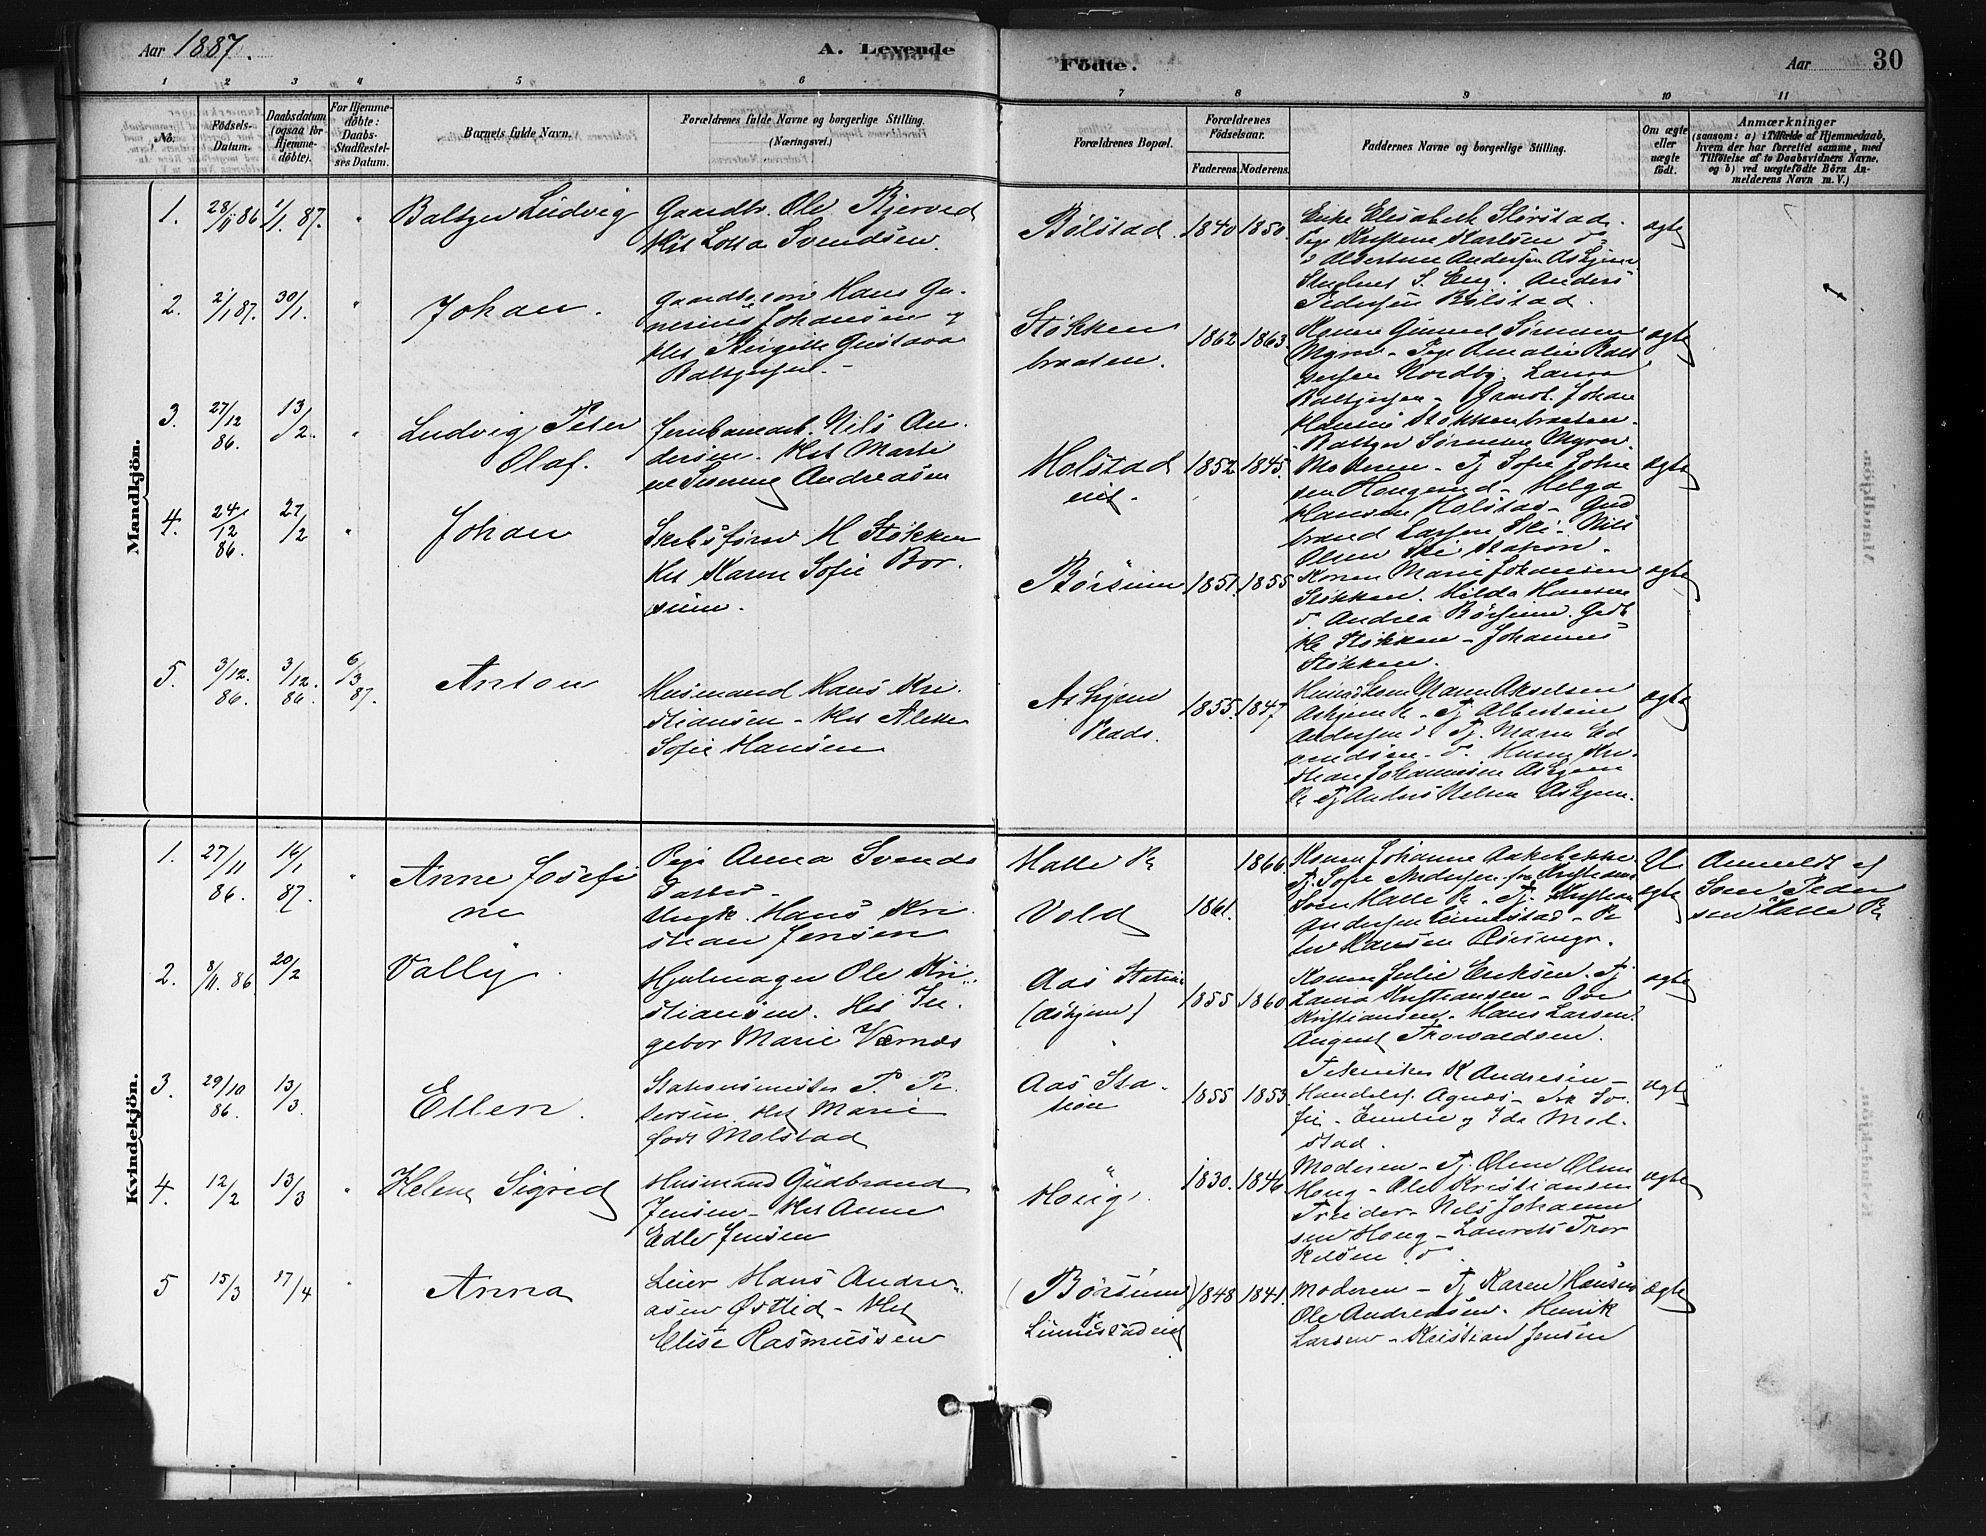 Aar 1887. A. Levende
Fødte. Aar 30
1 2 3 4 5 6 7 8 9 10 11
No.
Fødsels-
Datum.
Daabsdatum
(ogsaa for
Hjemme-
døbte).
For Hjemme-
døbte:
Daabs-
Stadfæstel-
ses Datum.
Barnets fulde Navn.
Forældrenes fulde Navne og borgerlige Stilling.
(Næringsvei.)
Forældrenes Bopæl.
Forældrenes
Fødselsaar.
Faderens. Moderens.
Faddernes Navne og borgerlige Stilling.
Om ægte
eller
uægte
født.
Anmærkninger
(saasom: a) i Tilfælde af Hjemmedaab,
hvem der har forrettet samme, med
Tilføielse af to Daabsvidners Navne.
og b) ved uægtefødte Børn An-
melderens Navn m. V.)
Mandkjön.
1. 28/11 86 1/1 87. " Baltzer Ludvig
Gaardbr. Ole Bjerved
Hst Lotta Svendsen.
Bølstad. 1840 1850.
Enke Elisabeth Slørstad.
Pige Kristine Karlsen
Albertine Andersen Askjem
S. Eng. Anders
Pedersen Bølstad.
ægte
2. 2/1 87. 30/1. " Johan.
Hans Gu-
nerius Johansen og
Hst Birgitte Gustava
Baltzersen.
Støkken
braaten.
1862 1863.
Konen Gunnel Sørensen
Myrer - Pige Amalie Balt
zersen Nordby. Laura
Baltzersen - Johan
Hansen Støkkenbraaten.
Baltzer Sørensen Myrer.
ægte
3. 27/12 86. 13/2. " Ludvig Peter
Olaf.
Jernbanearb. Nils An-
dersen. Hst Marti
ne Andreasen
Holstad
eie.
1852 1845.
Moderen - Tj Sofie Johan
sen Haugerud - Helga
Hansen Holstad - Gud
brand Larsen Ski - Nils
Olsen Ski Station.
ægte
4. 24/12 86. 27/2 " Johan
Skibsfører M Støkken
Hst Karen Sofie Bor-
sum.
Børsum 1851. 1855
Konen Marie Johansen
Støkken. Hilda Hansen
Andrea Børsum.
Støkken - Johannes
Støkken.
ægte
5. 3/12. 86. 3/12. 86. 6/3 87. Anton
Husmand Hans Kri-
stiansen - Hst Alette
Sofie Hansen
Askjem
Plads.
1855. 1847
Maren Akselsen
Askjem - Tj Albertine
Andersen Tj. Maren Ed
vendsen - Kri-
stian Johannesen Askjem
Tj Anders Nelsen Askjem.
ægte
Kvindekjön.
1. 27/11 86. 16/1 87. " Anne Josefi
ne
Pige Anna Svends
datter -
Ungk. Hans Kri
stian Jensen
Halle Pl
Vold
1861. 1866.
Konen Johanne Aakebakke
Tj. Sofie Andersen fra Kristiania
Sven Halle Pl - Tj. Kristian
Andersen - Pe
ter Hansen
U
ægte
Anmeldt af
Sven Peder
sen Halle Pl
2. 8/11. 86. 20/2 Vally.
Hjulmager Ole Kri-
stiansen. Hst In-
gebor Marie Værnes
Aas Station
(Askjem)
1855 1860.
Konen Julie Eriksen. Tj
Laura Kristiansen - Ove
Kristiansen. Hans Larsen.
August Thorvaldsen.
ægte
3. 29/10 86. 13/3. Ellen.
Stationsmester P. Pe-
tersen. Hst Marie
født Molstad
Aas Sta-
tion
1855 1853.
K Andresen -
Agnes - So-
fie - Emilie og Ida Mol-
stad.
ægte
4. 12/2 13/3 " Helene Sigrid
Husmand Gudbrand
Jensen - Hst Anne
Edle Jensen
Houg. 1830. 1846.
Moderen - Tj. Oline Olsen
Houg - Ole Kristiansen
Treider - Nils Johann
sen Houg - Laurets Thor
kelsen
ægte
5 15/3 17/4 " Anna
Leier Hans Andre-
asen Østlid - Hst
Elise Rasmussen
(Børsum)
1848 1841.
Moderen - Tj Karen Hansen
Ole Andreasen. Henrik
Larsen - Kristian Jensen
ægte